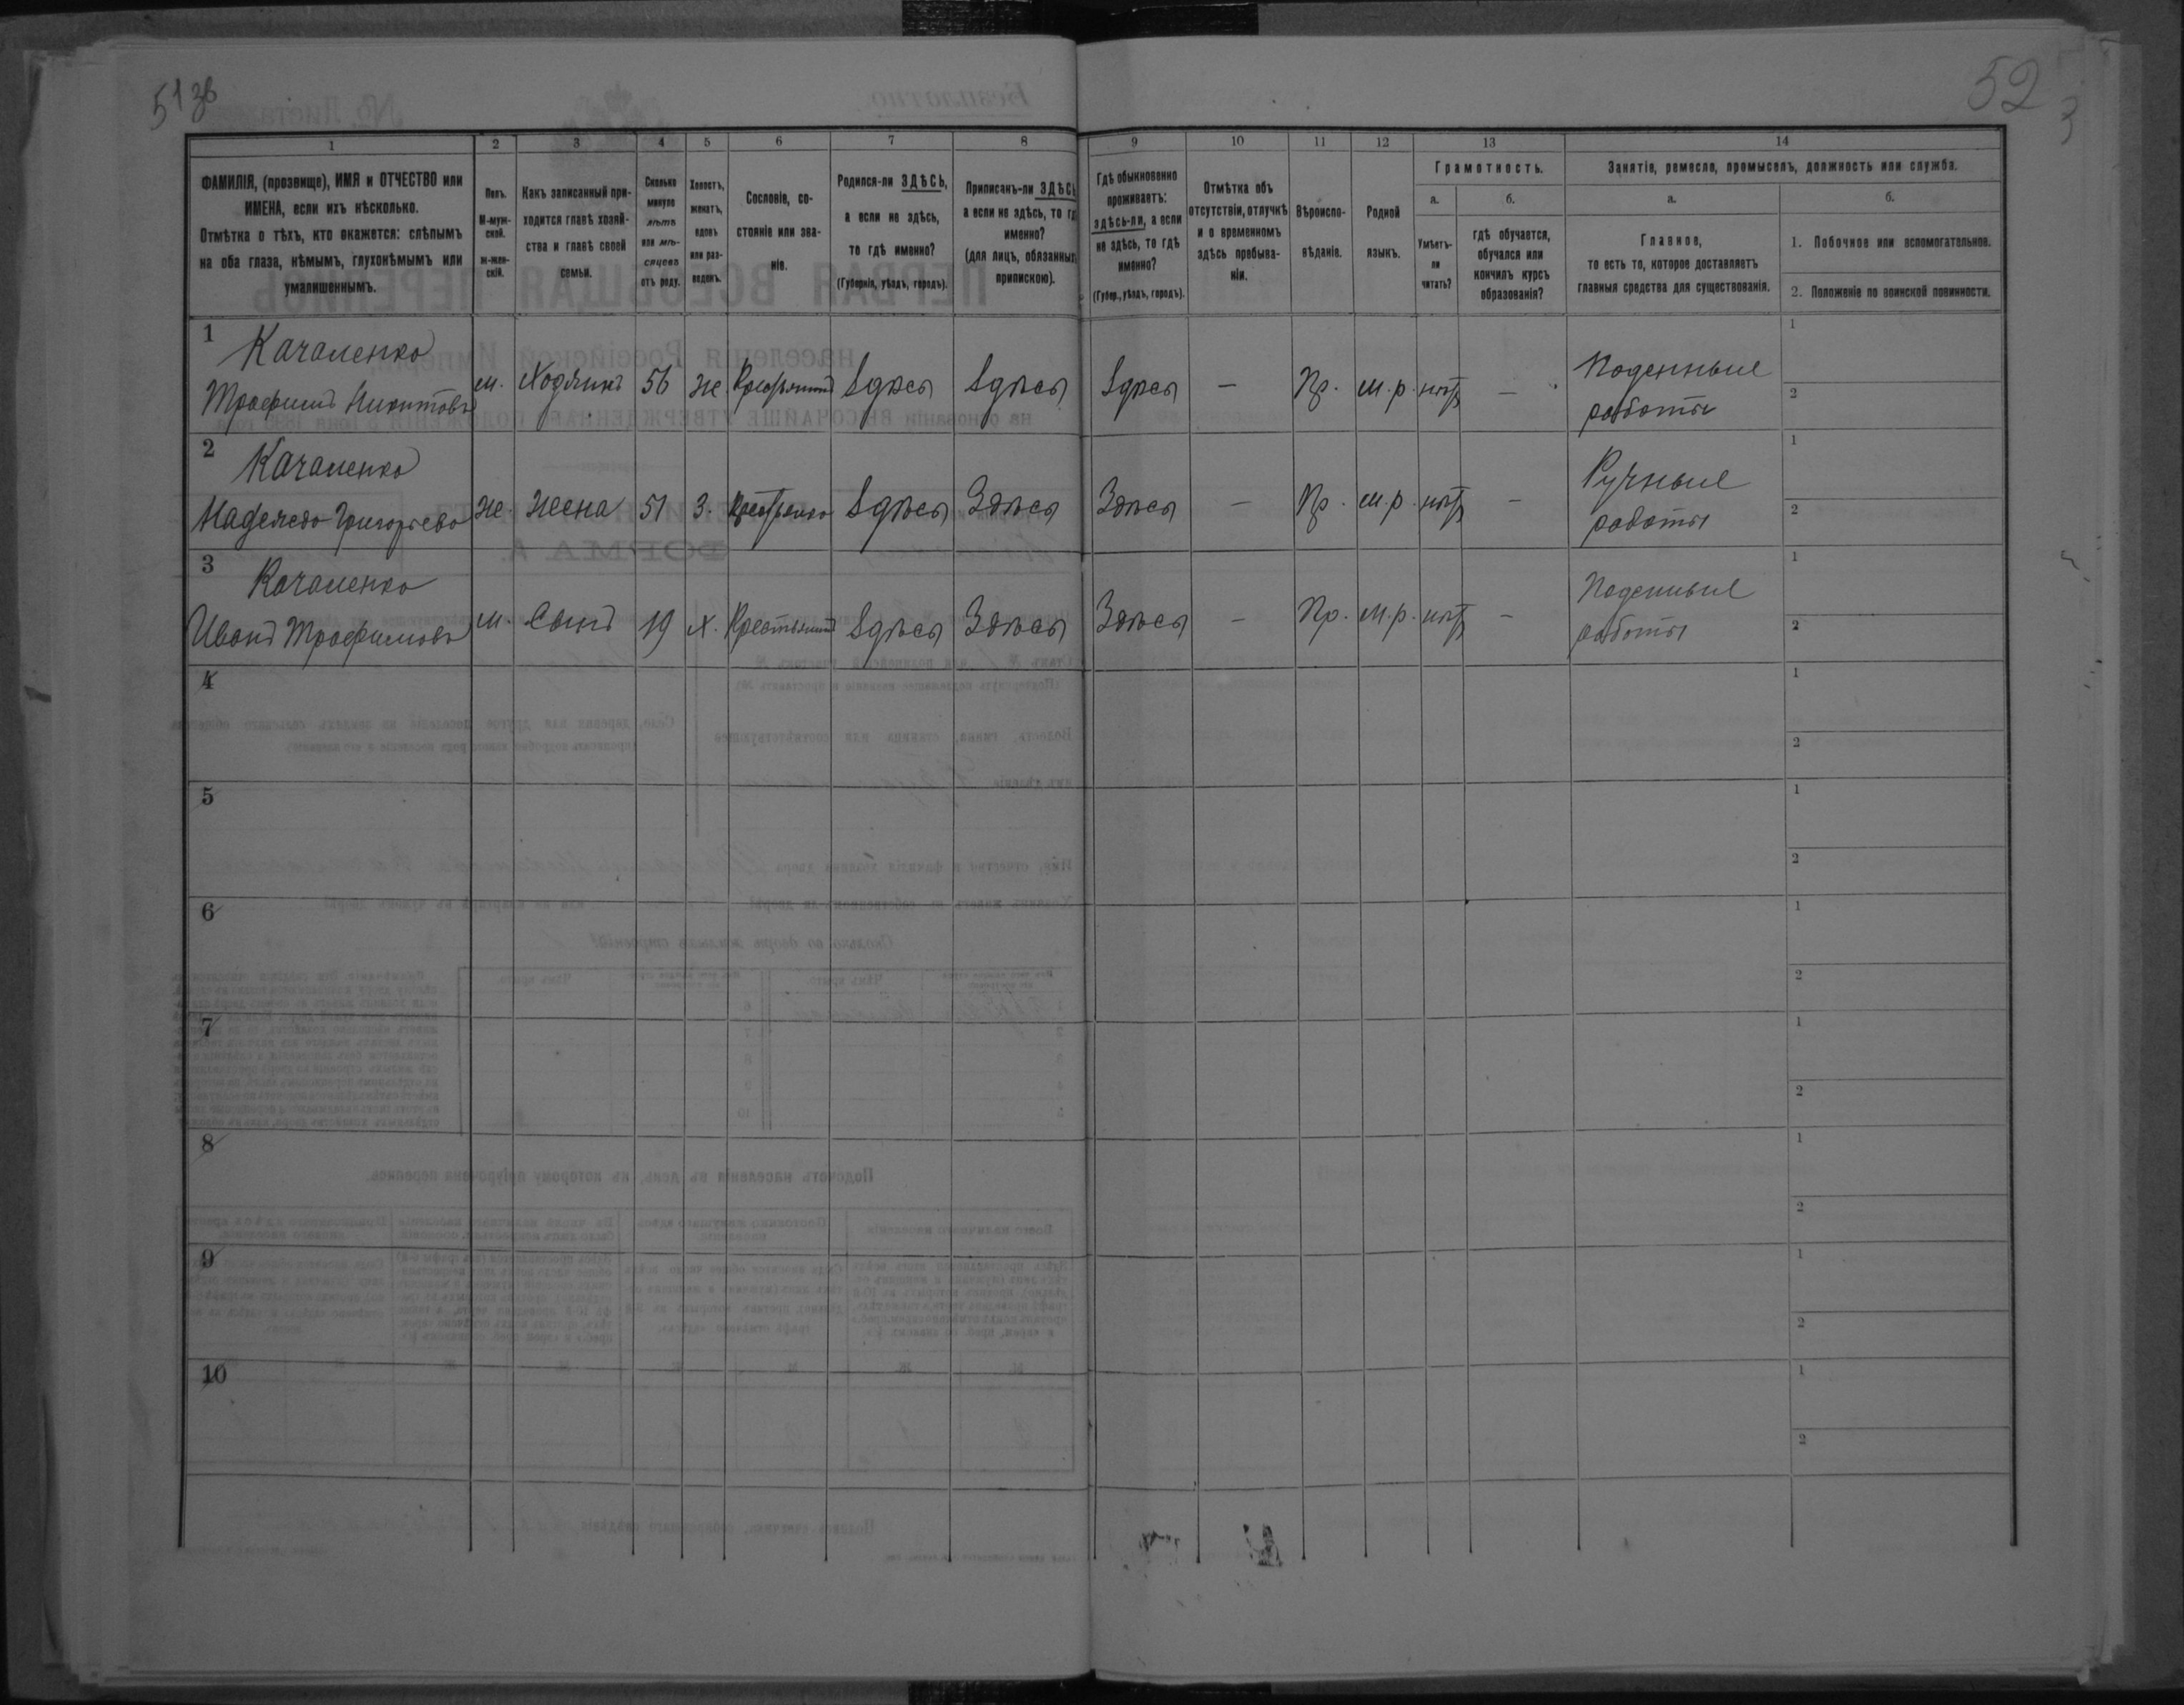 51 зв
52
1
2
3
4
5
6
7
8
9
10
11
12
13
14
ФАМИЛІЯ, (прозвище), ИМЯ и ОТЧЕСТВО или
ИМЕНА, если ихъ нѣсколько.
Отмѣтка о тѣхъ, кто окажется: слѣпымъ
на оба глаза, нѣмымъ, глухонѣмымъ или
умалишеннымъ.
Полъ.
М-муж-
ской.
ж-жен-
скій.
Какъ записанный при-
ходится главѣ хозяй-
ства и главѣ своей
семьи.
Сколько
минуло
лѣтъ
или мѣ-
сяцевъ
отъ роду.
Холостъ,
женатъ,
вдовъ
или раз-
веденъ.
Сословіе, со-
стояніе или зва-
ніе.
Родился-ли ЗДѢСЬ,
а если не здѣсь,
то гдѣ именно?
(Губернія, уѣздъ, городъ).
Приписанъ-ли ЗДѢСЬ
а если не здѣсь, то гдѣ
именно?
(для лицъ, обязанныхъ
припискою).
Гдѣ обыкновенно
проживаетъ:
здѣсь-ли, а если
не здѣсь, то гдѣ
именно?
(Губер., уѣздъ, городъ).
Отмѣтка объ
отсутствіи, отлучкѣ
и о временномъ
здѣсь пребыва-
ніи.
Вѣроиспо-
вѣданіе.
Родной
языкъ.
Грамотность.
а.
Умѣетъ-
ли
читать?
б.
гдѣ обучается,
обучался или
кончилъ курсъ
образованія?
Занятіе, ремесло, промыселъ, должность или служба.
а.
Главное,
то есть то, которое доставляетъ
главныя средства для существованія.
б.
1. Побочное или вспомогательное.
2. Положеніе по воинской повинности.
1 Качаненко
Трофимъ Никитовъ м. Хозяинъ 56 ж. Крестьянинъ Здѣсь Здѣсь Здѣсь — Пр. м.р. нѣтъ — Поденныя
работы
1
2
2 Качаненко
Надежда Григорьева ж. Жена 51 З. Крестьянка Здѣсь Здѣсь Здѣсь — Пр. м.р. нѣтъ — Ручныя
работы
1
2
3 Качаненко
Иванъ Трофимовъ м. Сынъ 19 х. Крестьянинъ Здѣсь Здѣсь Здѣсь — Пр. м.р. нѣтъ — Поденныя
работы
1
2
4
1
2
5
1
2
6
1
2
7
1
2
8
1
2
9
1
2
10
1
2